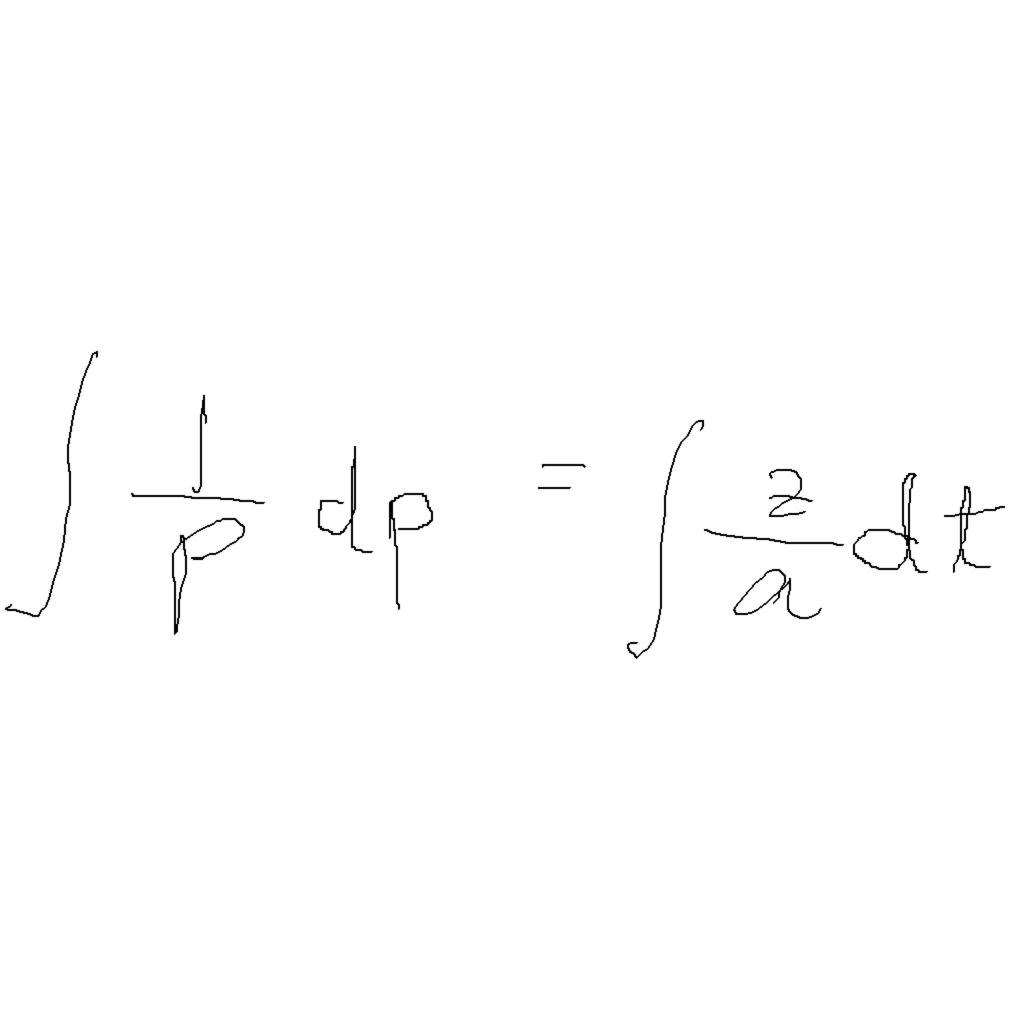 \int \frac{1}{p} dp = \int \frac{2}{a} dt